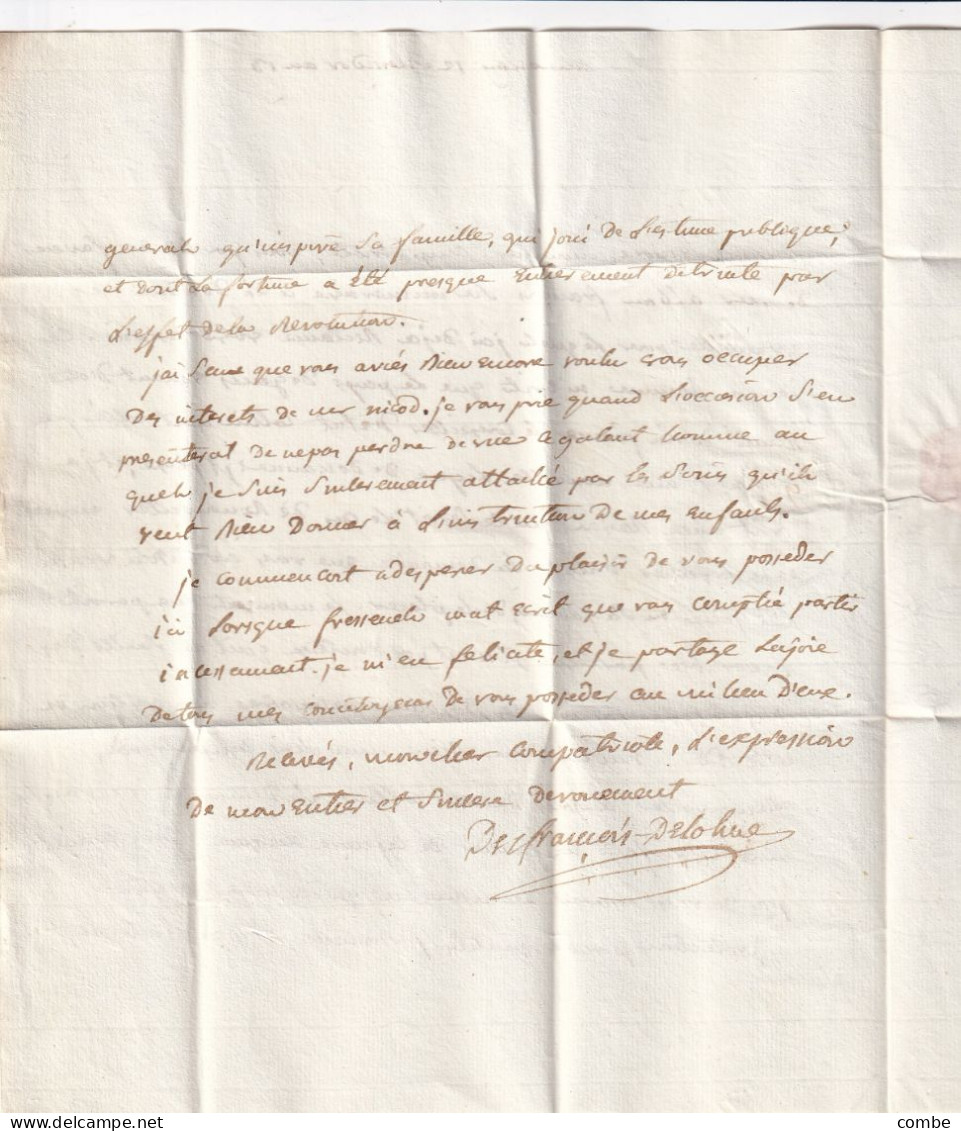 general qu'inspire sa famille, qui joui de l'estime publique,
et dont la fortune a été presque entierement detruite par
l'effet de la revolution.
j'ai seue que vous aviés bien encore voulu vous occuper
des interets de mr nicod. je vous prie quand l'occasion s'en
presenterat de ne pas perdre de vue ce galant homme au
quel je suis sincerement attaché par les soins qu'il
veut bien donner à l'instruction de mes enfants.
je commencait a desperer du plaisir de vous posseder
ici lorsque fressenel mat ecrit que vous comptié partir
incessament. je m'en felicite, et je partage la joie
de tous mes concitoyens de vous posseder au milieu d'eux.
recevés, mon cher compatriote, l'expression
de mon entier et sincere devouement
Desfrançois-Delolme
combe
delcampe.net